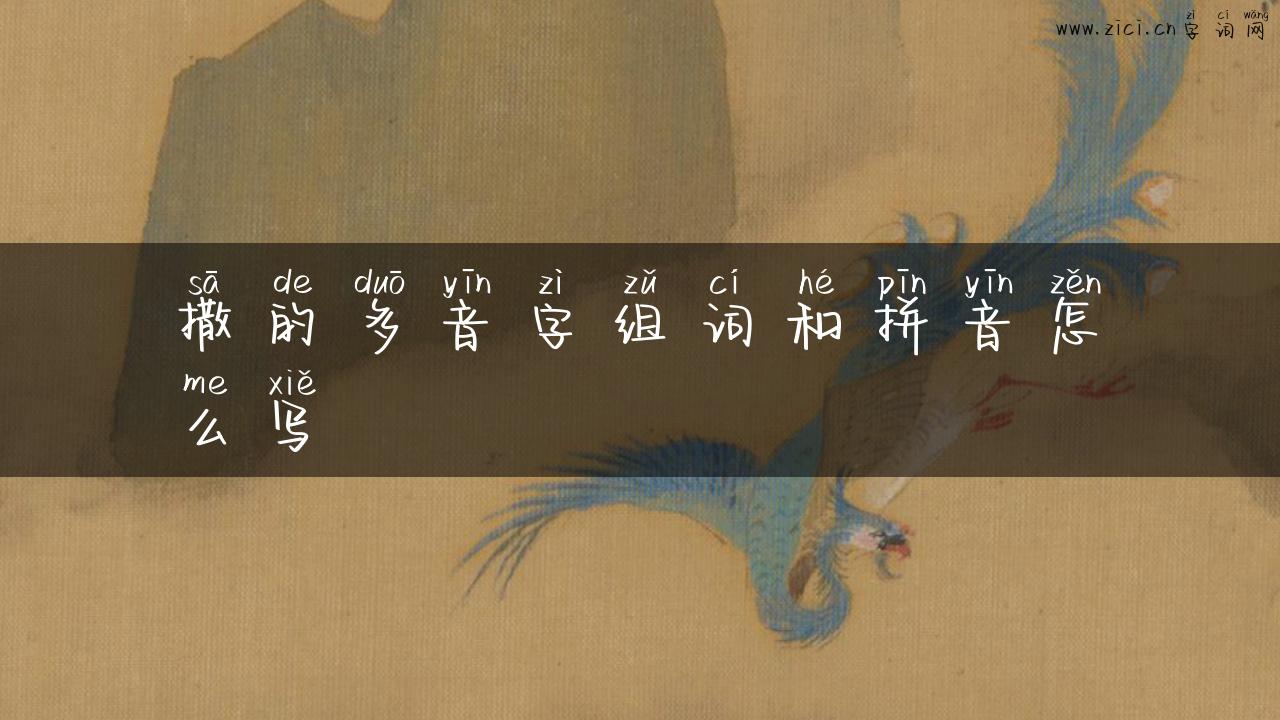 zì cí wǎng
www.zici.cn 字词网
sā de duō yīn zì zǔ cí hé pīn yīn zěn
撒的多音字组词和拼音怎
me xiě
么写